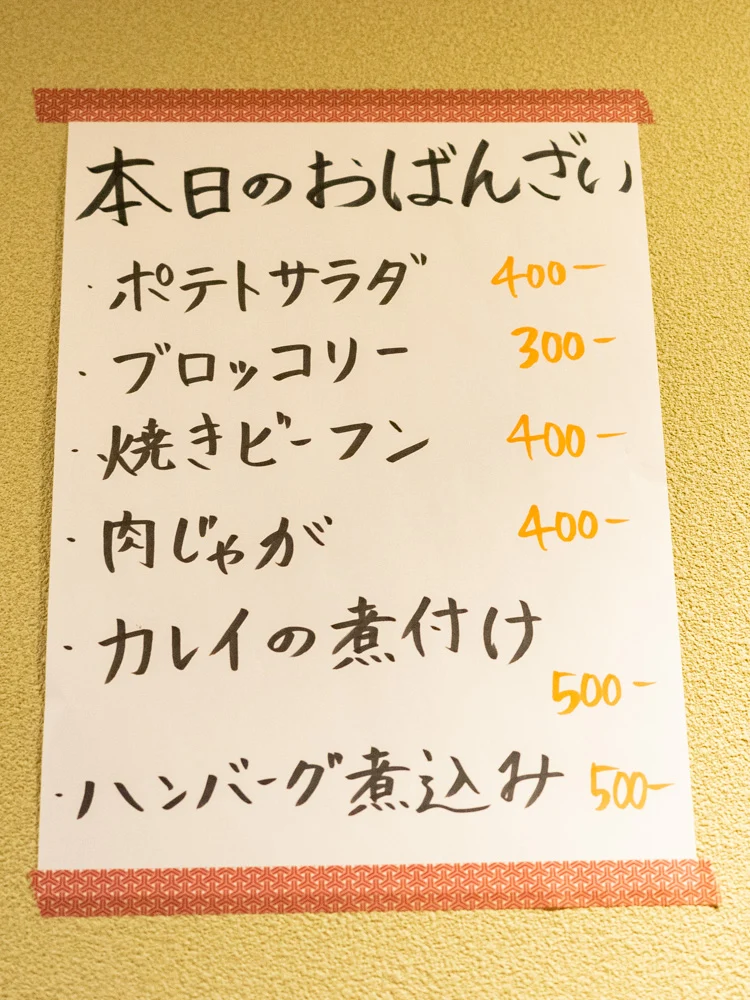 本日のおばんざい
・ポテトサラダ 400-
・ブロッコリー 300-
・焼きビーフン 400-
・肉じゃが 400-
・カレイの煮付け
500-
・ハンバーグ煮込み 500-